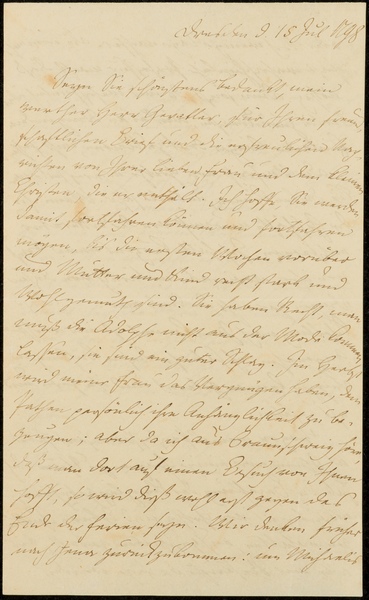 Dresden d 15 Jul 1798
Seyn Sie schönstens bedankt, mein
werther Herr Gevatter, für Ihren freund
schaftlichen Brief und die erfreulichen Nach
richten von Ihrer lieben Frau und dem kleinen
Christen, die er enthält. Ich hoffe, Sie werden
damit fortfahren können und fortfahren
mögen, bis die ersten Wochen vorüber
und Mutter und Kind recht stark und
wohlgemuth sind. Sie haben Recht, man
muß die Adolphe nicht aus der Mode kommen
lassen, sie sind ein guter Schlag. Im Herbst
wird meine Frau das Vergnügen haben, dem
Pathen persönlich ihre Anhänglichkeit zu be-
zeugen; aber da ich aus Braunschweig höre,
daß man dort auf einen Besuch von Ihnen
hofft, so wird dieß wohl erst gegen das
Ende der Ferien seyn. Wir denken früher
nach Jena zurückzukommen: um Michaelis